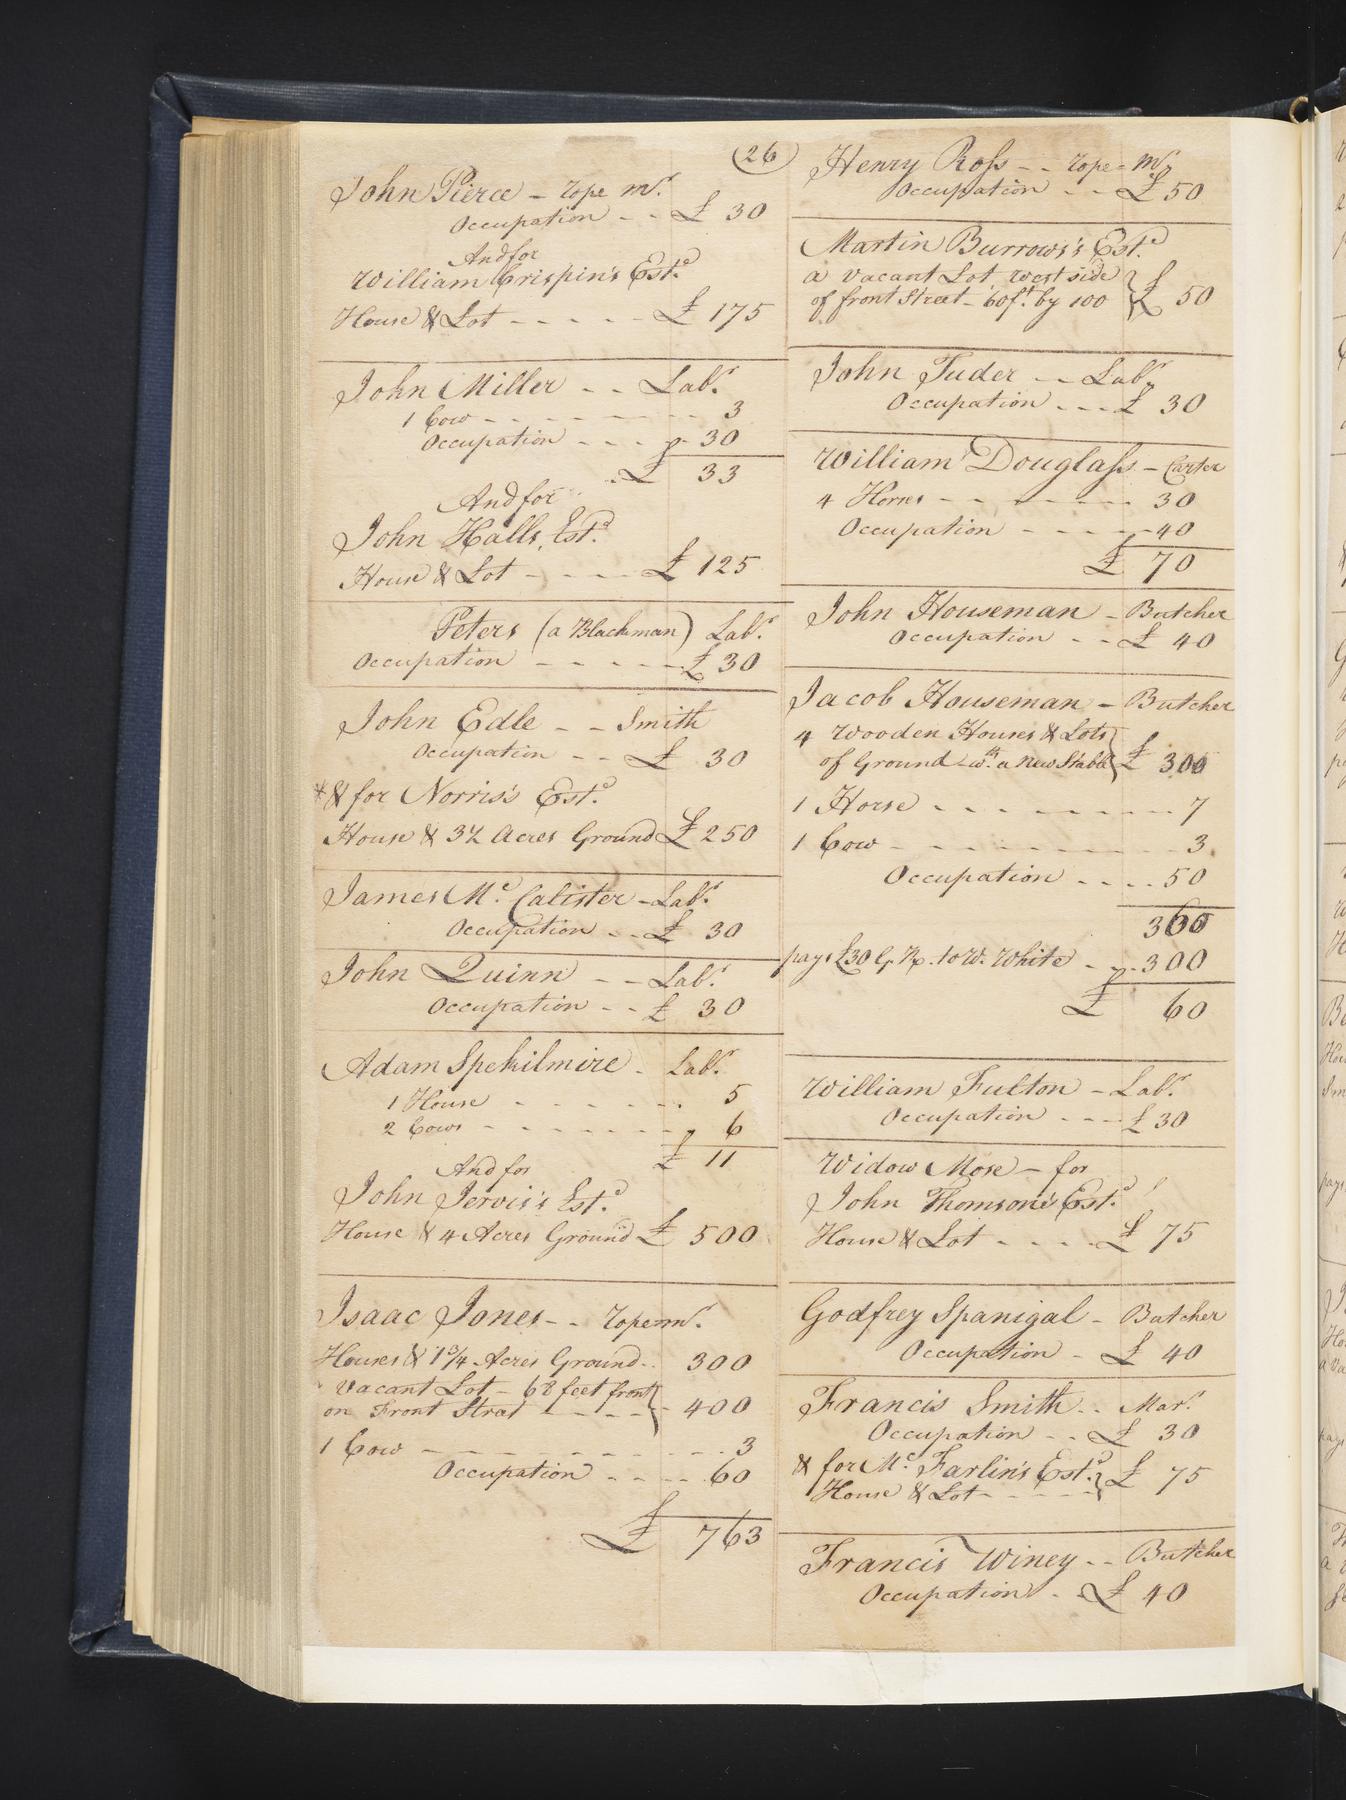 26
John Pierce - rope mr.
Occupation - - £ 30
And for
William Crispin's Estd
House & Lot - - - - - £ 175
John Miller - - Labr.
1 Cow - - - - - - - - 3
Occupation - - - - 30
£ 33
And for
John Halls, Estd.
House & Lot - - - - £ 125
Peters (a Blackman) Labr.
Occupation - - - - - £ 30
John Edle - - Smith
Occupation - - £ 30
* & for Norris's Estd.
House & 3½ Acres Ground £ 250
James Mc. Calister - Labr.
Occupation - - £ 30
John Quinn - - Labr.
Occupation - - £ 30
Adam Spekilmire - Labr.
1 House - - - - - - 5
2 Cows - - - - - - - 6
£ 11
And for
John Jervis's Estd.
House & 4 Acres Ground £ 500
Isaac Jones - - ropemr.
Houses & 1¾ Acres Ground - - 300
Vacant Lot - 68 feet front
on Front Street - - - - 400
1 Cow - - - - - - - - - - 3
Occupation - - - - 60
£ 763
Henry Ross - - rope = mr
Occupation - - £ 50
Martin Burrows's Estd.
a vacant Lot, west side
of front Street - 60ft. by 100 £ 50
John Tuder - - Labr
Occupation - - - £ 30
William Douglass - Carter
4 Horses - - - - - - - 30
Occupation - - - - - 40
£ 70
John Houseman - Butcher
Occupation - - £ 40
Jacob Houseman - Butcher
4 Wooden Houses & Lots
of Ground wth. a new Stable £ 300
1 Horse - - - - - - - - 7
1 Cow - - - - - - - - - 3
Occupation - - - - 50
360
pays £30 G. R. to W. White - - - 300
£ 60
William Fulton - Labr.
Occupation - - - £ 30
Widow More - for
John Thomson's Estd.
House & Lot - - - - £ 75
Godfrey Spanigal - Butcher
Occupation - £ 40
Francis Smith - - Marr.
Occupation - - £ 30
& for Mc. Farlin's Estd.
House & Lot - - - - - £ 75
Francis Winey - - Butcher
Occupation - - £ 40